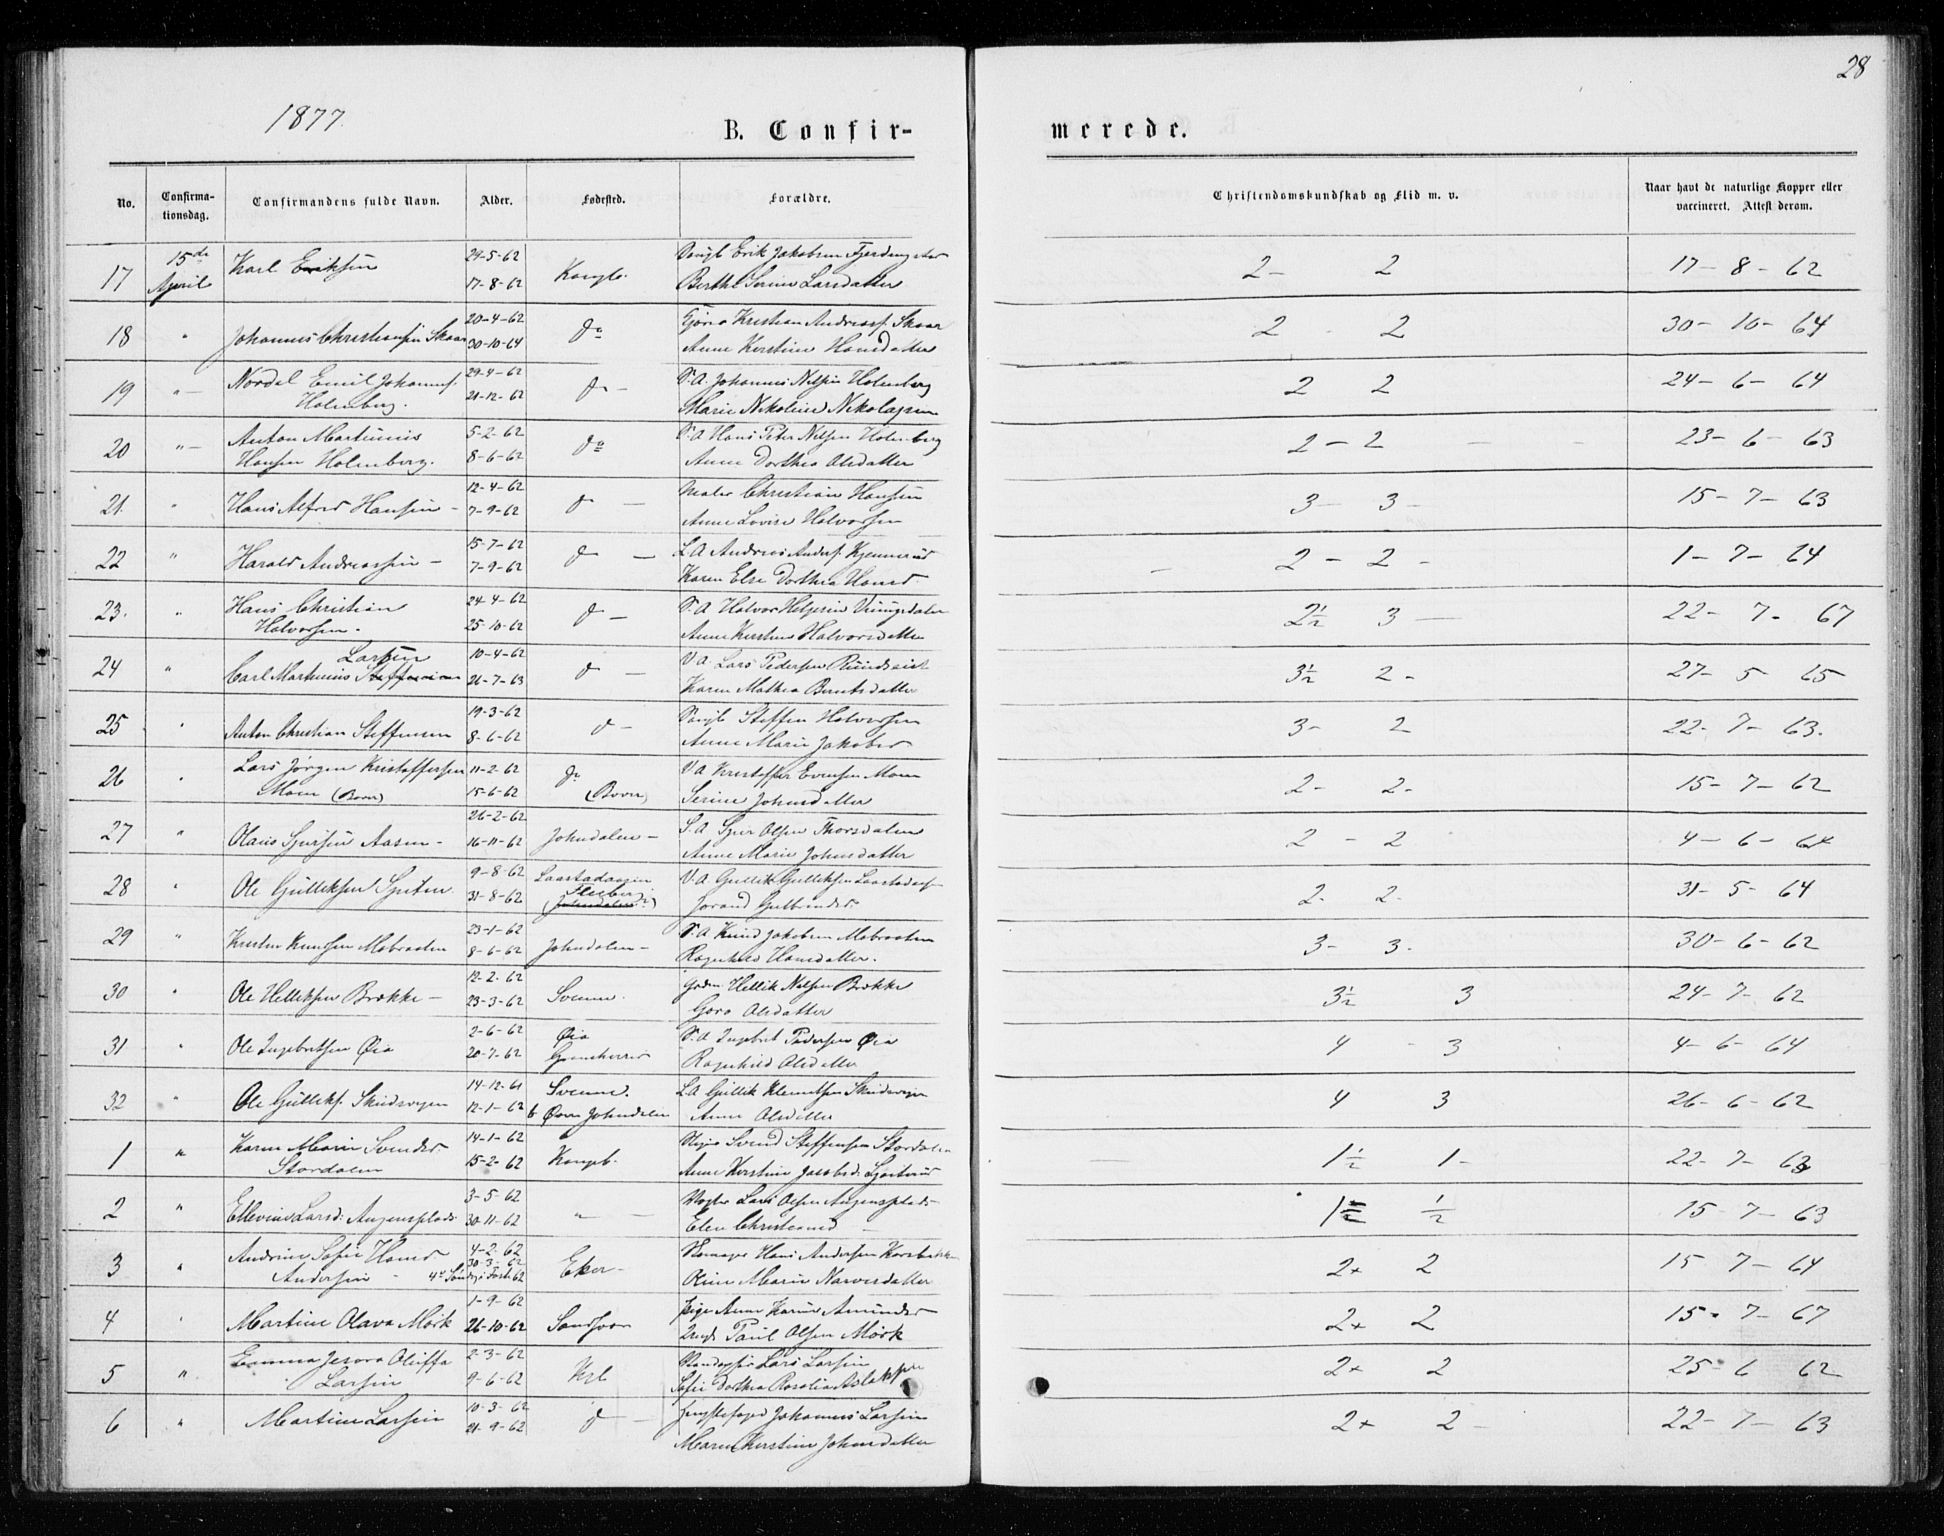 28
1877.
B. Confir-
merede.
No.
Confirma-
tionsdag.
Confirmandens fulde Navn.
Alder.
Fødested.
Forældre.
Christendomskundskab og Flid m. v.
Naar havt de naturlige Kopper eller
vaccineret. Attest derom.
17 15de April Karl Eriksen 29-5-62 Kongb. Erik Jakobsen
17-8-62 Berthe Serine Larsdatter 2- 2 17-8-62
18 " Johannes Christiansen Skaar 20-4-62 do Kristian Andreass. Skaar
30-10-64 Anne Kirstine Hansdatter 2 - 2 30-10-64
19 "- Emil Johanness. 29-4-62 do - S.A. Johannes Nilsen Holenberg
Holenberg. 21-12-62 Marie Nikoline Nikolajsen 2 2 24-6-64
20 "- Anton Martinius 5-2-62 do S.A Hans Peter Nilsen Holenberg
Hansen Holenberg. 8-6-62 Anne Dorthea Olsdatter 2-2 23-6-63
21. " Hans Alfred Hansen - 12-4-62 do - Maler Christian Hansen
7-9-62 Anne Lovise Halvorsen 3- 3- 15-7-63
22 " Harald Andreassen - 15-7-62 do - L.A Andreas Anders.
7-9-62 Karen Else Dorthea Hansd. 2-2- 1-7-64
23. " Hans Christian 24-4-62 do - S.A Halvor
Halvorsen. 25-10-62 Anne Kirstine Halvorsdatter 2½ 3- 22-7-67
24 " Larsen 10-4-62 do - V.A. Lars Pedersen
Carl Martinius Steffensen 26-7-63 Karen Mathea Berntsdatter 3½ 2- 27-5-65
25 " Anton Christian Steffensen 19-3-62 do - Steffen Halvorsen
8-6-62 Anne Marie Jakobsd 3- 2 22-7-63.
26 " Lars Jørgen Kristoffersen 11-2-62 do V.A Kristoffer Evensen Moen
Moen 15-6-62 Serine Johnsdatter 2- 2- 15-7-62
27 " Olaus Sjursen Aasen - 26-2-62 Johndalen - S.A Sjur Olsen Thorsdalen
16-11-62 Anne Marie Johnsdatter 2-2 4-6-64
28 " Ole Gulliksen 9-8-62 V.A Gullik Gulliksen
31-8-62 Flesberg (Johndalen) Jorand Gulbrandsd. 2- 2- 31-5-64
29 " Kristen Knudsen Mobraaten 23-1-62 Johndalen - S.A Knud Jakobsen Mobraaten
8-6-62 Ragnhild Hansdatter. 3- 3- 30-6-62
30 " Ole Helliksen Brække - 12-2-62 Svenne. Hellik Nilsen Brække
23-3-62 Goro Olsdatter 3½ 3 24-7-62
31 " Ole Ingebretsen Øia 2-6-62 Øia S.A Ingebret Pedersen Øia
20-7-62 Ragnhild Olsdatter 4 - 3 4-6-64
32 " Ole Gulliks. 14-12-61 Svenne. L.A Gullik Klemetsen
12-1-62 Johndalen Anne Olsdatter 4 3 26-6-62
1 " Karen Marie Svendsd. 14-1-62 Kongsb. Svend Steffensen Stordalen
Stordalen 15-2-62 Anne Kirstine Jacobsd. 1½ 1- 22-7-63
2 " Ellevine Larsd. Augensplads 3-5-62 " - Lars Olsen Augensplads
30-11-62 Elen Christensd 1½ ½ 15-7-63
3 " Andrine Sofie Hansd 4-2-62 Eker - Skomager Hans Andersen
Andersen - 30-3-62 Oline Marie Narvesdatter 2+ 2 15-7-64
4 " Martine Olava Mørk 1-9-62 Sandsvær Pige Anne Karine Amundsd
26-10-62 Paul Olsen Mørk 2+ 2 15-7-67
5 " Emma Oluffa 2-3-62 Ksb Lars Larsen
Larsen 9-6-62 Sofie Dorthea Rosalia 2+ 2 25-6 62
6 " Martine Larsen 10-3-62 do - Johannes Larsen
21-9-62 Maren Kirstine Johnsdatter 2+ 2- 22-7-63